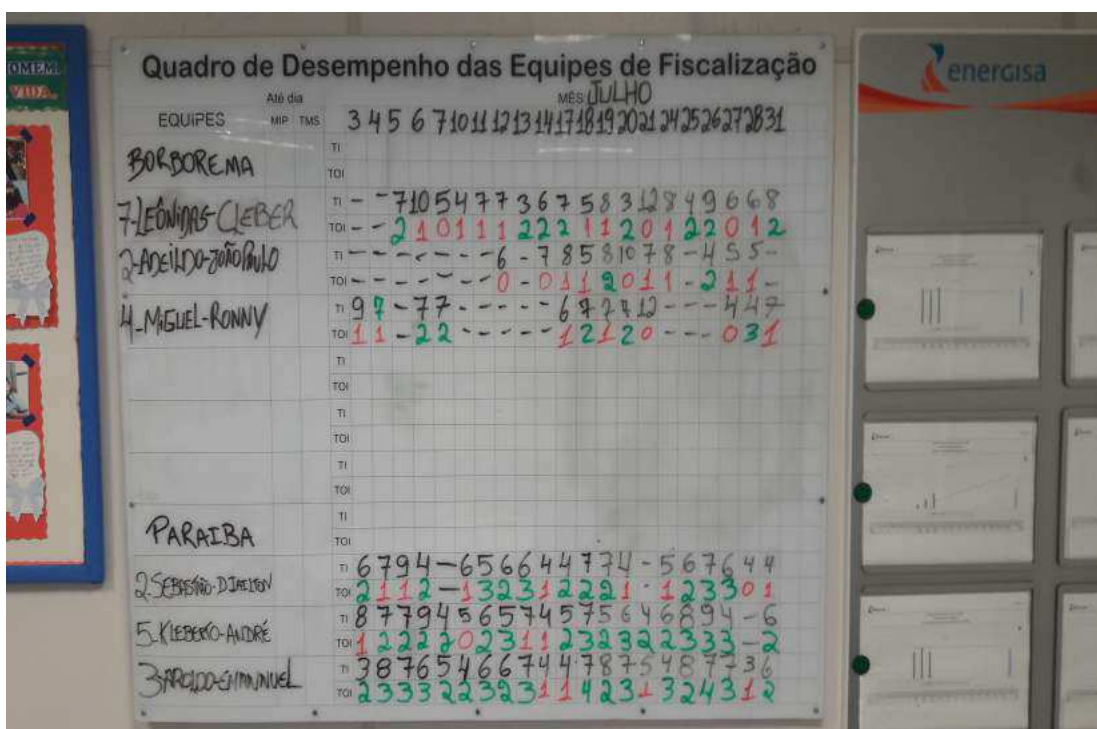 OMEM
VIDA.
Quadro de Desempenho das Equipes de Fiscalização
energisa
Até dia
MÊS: JULHO
EQUIPES MIP TMS 3 4 5 6 7 10 11 12 13 14 17 18 19 20 21 24 25 26 27 28 31
BORBOREMA
TI
TOI
7-LEÔNIDAS-CLEBER
TI - - 7 10 5 4 7 7 3 6 7 5 8 3 12 8 4 9 6 6 8
TOI - - 2 1 0 1 1 1 2 2 2 1 1 2 0 1 2 2 0 1 2
2-ADEILDO-JOÃO PAULO
TI - - - - - - - 6 - 7 8 5 8 10 7 8 - 4 5 5 -
TOI - - - - - - - 0 - 0 1 1 2 0 1 1 - 2 1 1 -
4-MIGUEL-RONNY
TI 9 7 - 7 7 - - - - - 6 7 7 7 12 - - - 4 4 7
TOI 1 1 - 2 2 - - - - - 1 2 1 2 0 - - - 0 3 1
TI
TOI
TI
TOI
TI
TOI
PARAIBA
TI
TOI
2-SEBASTIÃO-DJAILTON
TI 6 7 9 4 - 6 5 6 6 4 4 7 7 4 - 5 6 7 6 4 4
TOI 2 1 1 2 - 1 3 2 3 1 2 2 2 1 - 1 2 3 3 0 1
5-KLEBERTO-ANDRÉ
TI 8 7 7 9 4 5 6 5 7 4 5 7 5 6 4 6 8 9 4 - 6
TOI 1 2 2 2 2 0 2 3 1 1 2 3 2 3 2 2 3 3 3 - 2
3-AROLDO-EMANNUEL
TI 3 8 7 6 5 4 6 6 7 4 4 7 8 7 5 4 8 7 7 3 6
TOI 2 3 3 3 2 2 3 2 3 1 1 4 2 3 1 3 2 4 3 1 2